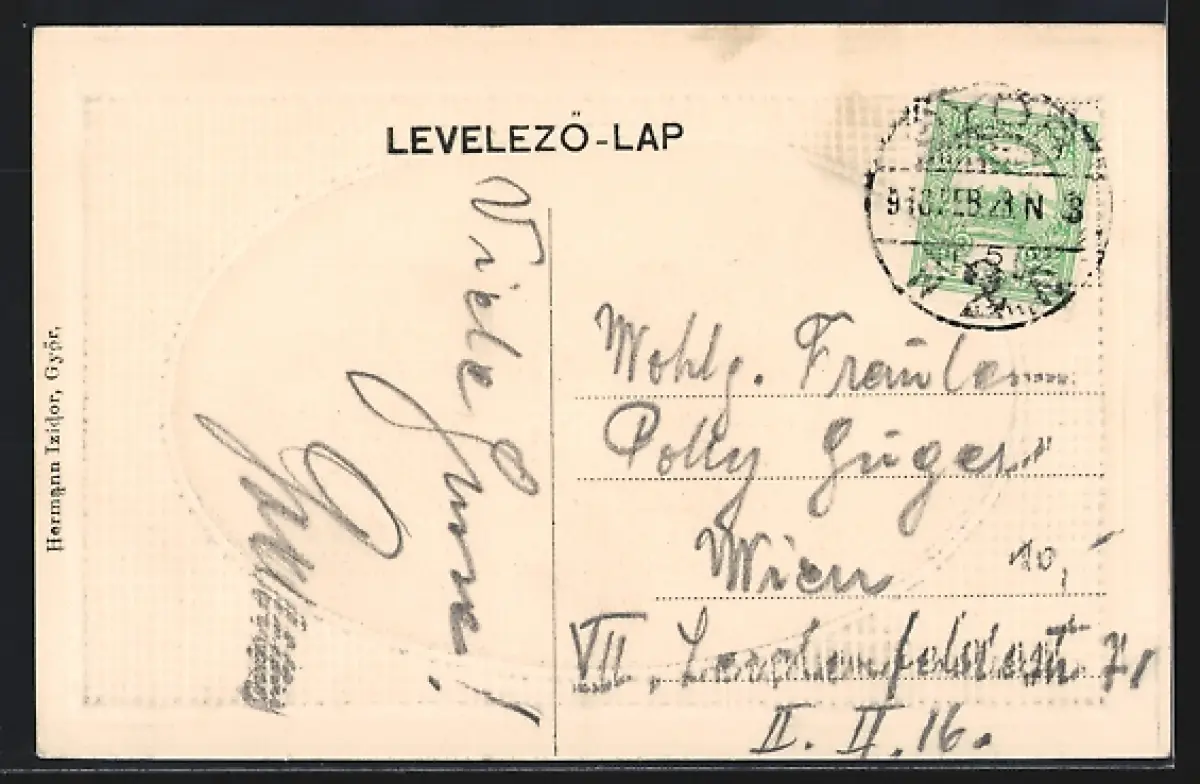 LEVELEZŐ-LAP
910 FEB. 23 N 3
5
Viele
Hermann Izidor, Győr.
Wohlg. Fräulein
Polly
Wien
10,-
VII. Lerchenfelderstr. 71
II. II. 16.